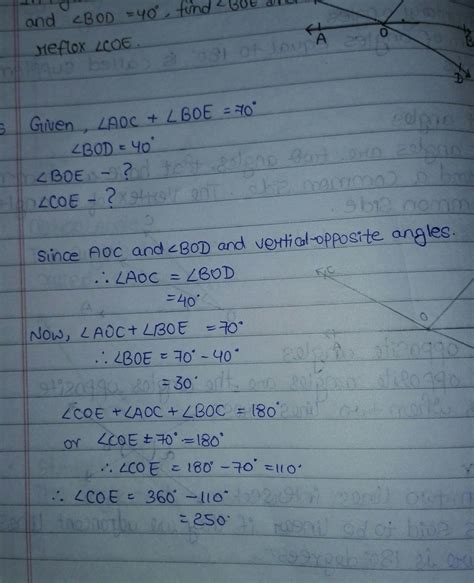 and ∠BOD = 40°, find ∠BOE and
reflex ∠COE.
A
O
B
D
Given, ∠AOC + ∠BOE = 70°
∠BOD = 40°
∠BOE - ?
∠COE - ?
Since AOC and ∠BOD and vertical-opposite angles.
∴ ∠AOC = ∠BOD
= 40°
C
O
Now, ∠AOC + ∠BOE = 70°
∴ ∠BOE = 70° - 40°
= 30°
∠COE + ∠AOC + ∠BOC = 180°
or ∠COE ± 70° = 180°
∴ ∠COE = 180° - 70° = 110°
∴ ∠COE = 360° - 110°
= 250°